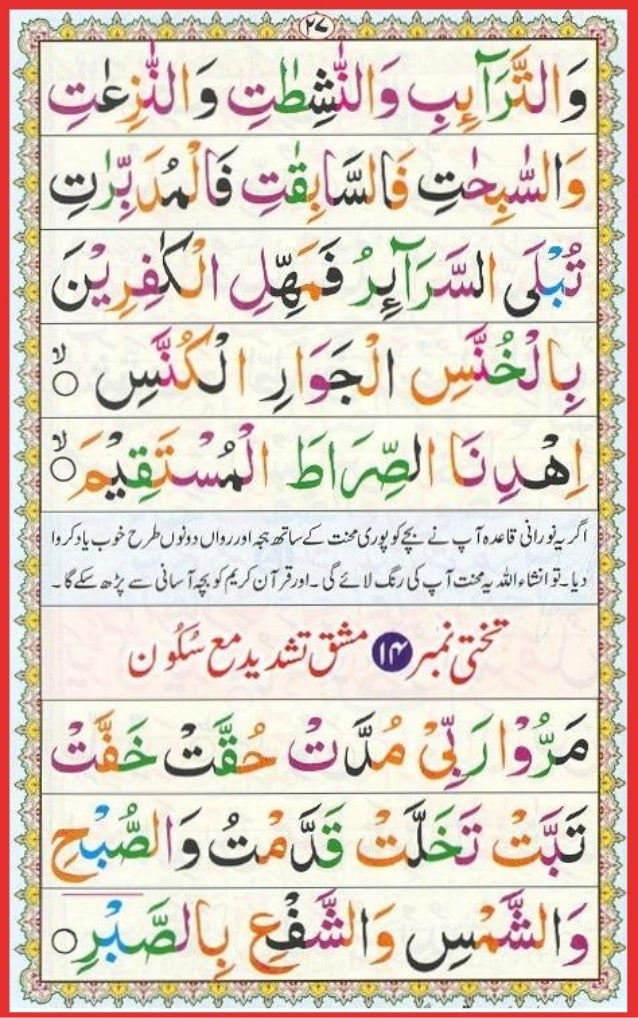 ۲۷
وَالتَّرَآئِبِ وَالنّٰشِطٰتِ وَالنّٰزِعٰتِ
وَالسّٰبِحٰتِ فَالسَّابِقٰتِ فَالْمُدَبِّرٰتِ
تُبْلَى السَّرَآئِرُ فَمَهِّلِ الْكٰفِرِيْنَ
بِالْخُنَّسِ الْجَوَارِ الْكُنَّسِ ۙ○
اِهْدِنَا الصِّرَاطَ الْمُسْتَقِيْمَ ۙ○
اگر یہ نورانی قاعدہ آپ نے بچے کو پوری محنت کے ساتھ ہجہ اور رواں دونوں طرح خوب یاد کروا
دیا۔ تو انشاء اللہ یہ محنت آپ کی رنگ لائے گی۔ اور قرآن کریم کو بچہ آسانی سے پڑھ سکے گا۔
تختی نمبر ۱۴ مشق تشدید مع سُکُون
مَرُّوْا رَبِّىْ مُدَّتْ حُقَّتْ خَفَّتْ
تَبَّتْ تَخَلَّتْ قَدَّمْتُ وَالصُّبْحِ
وَالشَّمْسِ وَالشَّفْعِ بِالصَّبْرِ ○